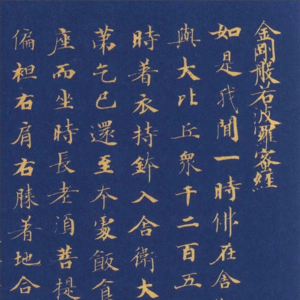 金剛般若波羅蜜經
如是我聞一時佛在舍
與大比丘衆千二百五
時著衣持鉢入舍衛大
第乞已還至本處飯食
座而坐時長老須菩提
偏袒右肩右膝著地合